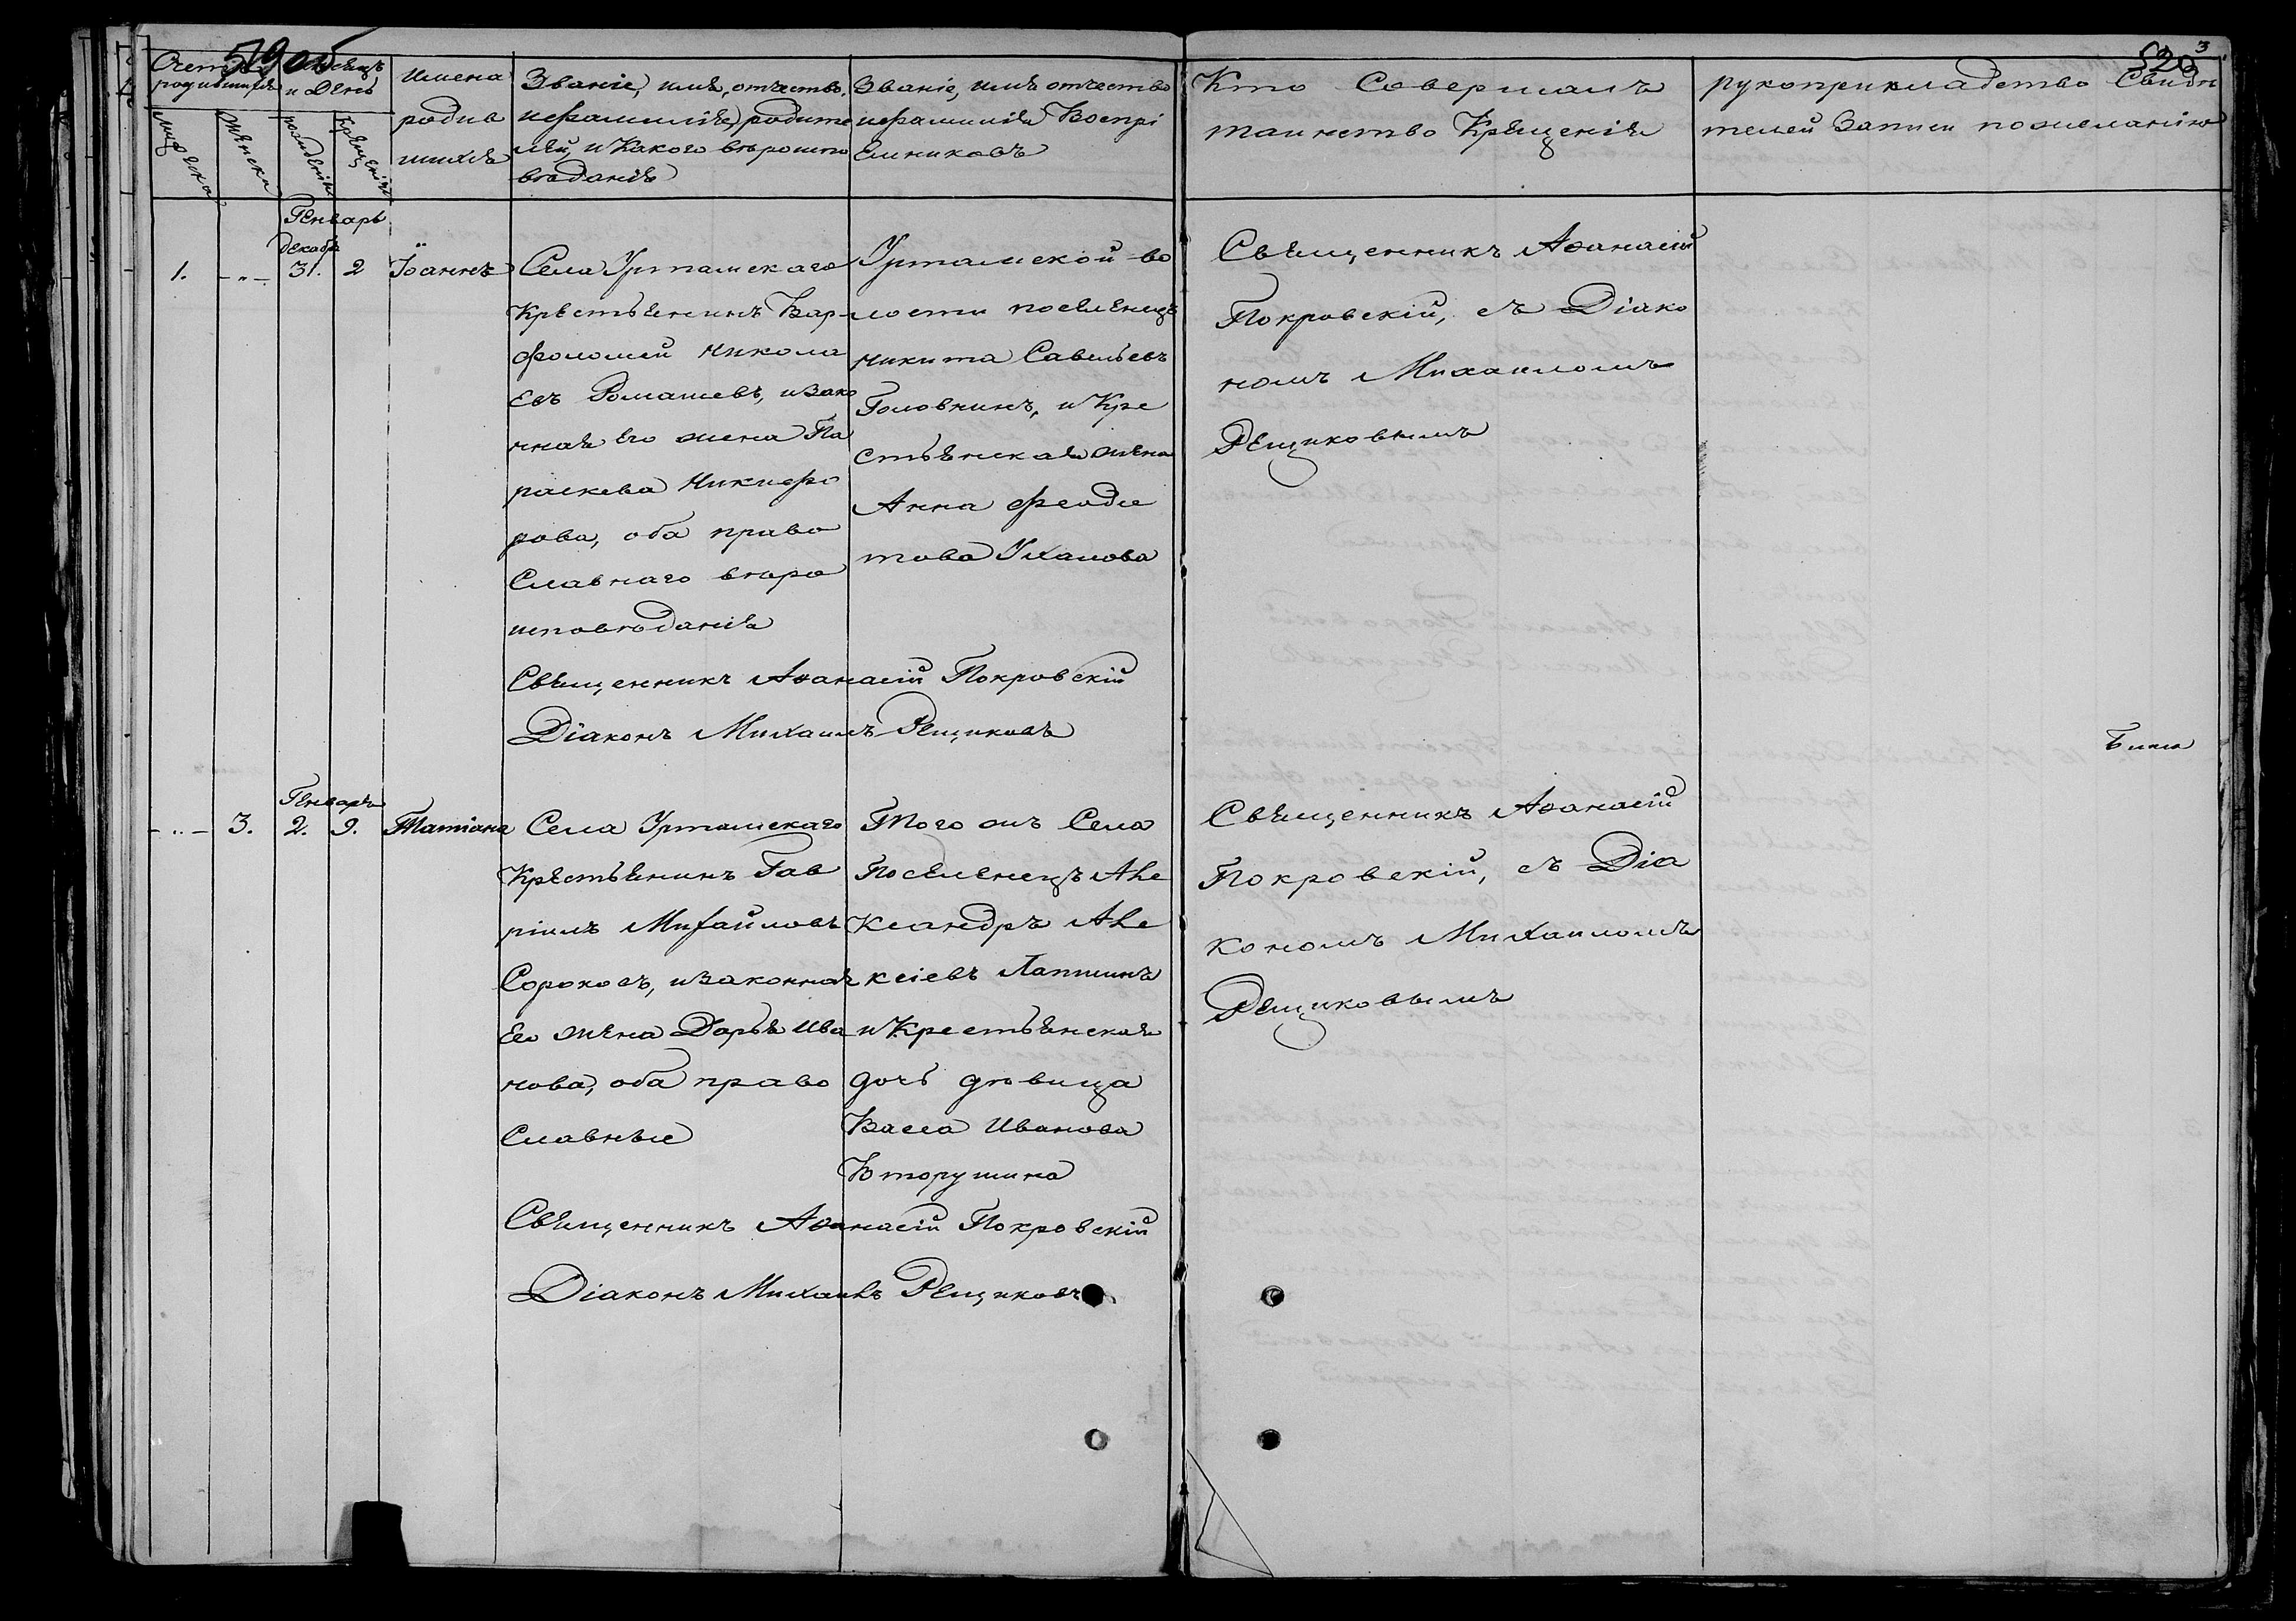 519 об
520
3
Счетъ родившихся
Мѣсяцъ и День
Мужеска
Женска
рожденія
крещенія
Имена родив
шихся
Званіе, имя, отчество,
и фамилія родите
лей, и Какого вѣроиспо
вѣданія
Званіе, имя отчество
и фамилія Воспрі
емниковъ
Кто Совершалъ
таинство Крещенія
рукоприкладство Свидѣ
телей Записи по желанію
Генварь
декабр
1.
31.
2
Іоаннъ
Села Уртамскаго
Крестьянинъ Вар-
фоломей Никола
евъ Ромашевъ, и зако
нная его жена Па
раскева Никифо
рова, оба право
Славнаго вѣро
исповѣданія
Уртамской во
лости поселенецъ
Никита Савельевъ
Головнинъ, и Кре
стьянская жена
Анна Федо
това Ухалова
Священникъ Аѳанасій
Покровскій, съ Діако
номъ Михаиломъ
Рещиковымъ
Священникъ Аѳанасій Покровскій
Діаконъ Михаилъ Рещиковъ
Генварь
3.
2.
9.
Татіана
Села Уртамскаго
Крестьянинъ Гав
ріилъ Михайловъ
Сороковъ, и законная
Его жена Дарья Ива
нова, оба право
Славные
Того жъ Села
Поселенецъ Але
ксандръ Але
ксіевъ Лапшинъ
и Крестьянская
дочь дѣвица
Васса Иванова
Вторушина
Священникъ Аѳанасій
Покровскій, съ Діа
кономъ Михаиломъ
Рещиковымъ
Священникъ Аѳанасій Покровскій
Діаконъ Михаилъ Рещиковъ